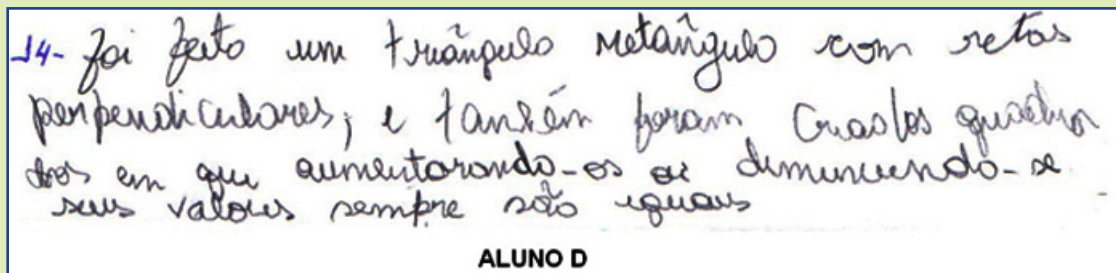 14- foi feito um triângulo retângulo com retas
perpendiculares, e também foram criados quadra
dos em que aumentarando-os ou diminuindo-se
seus valores sempre são iguais
ALUNO D